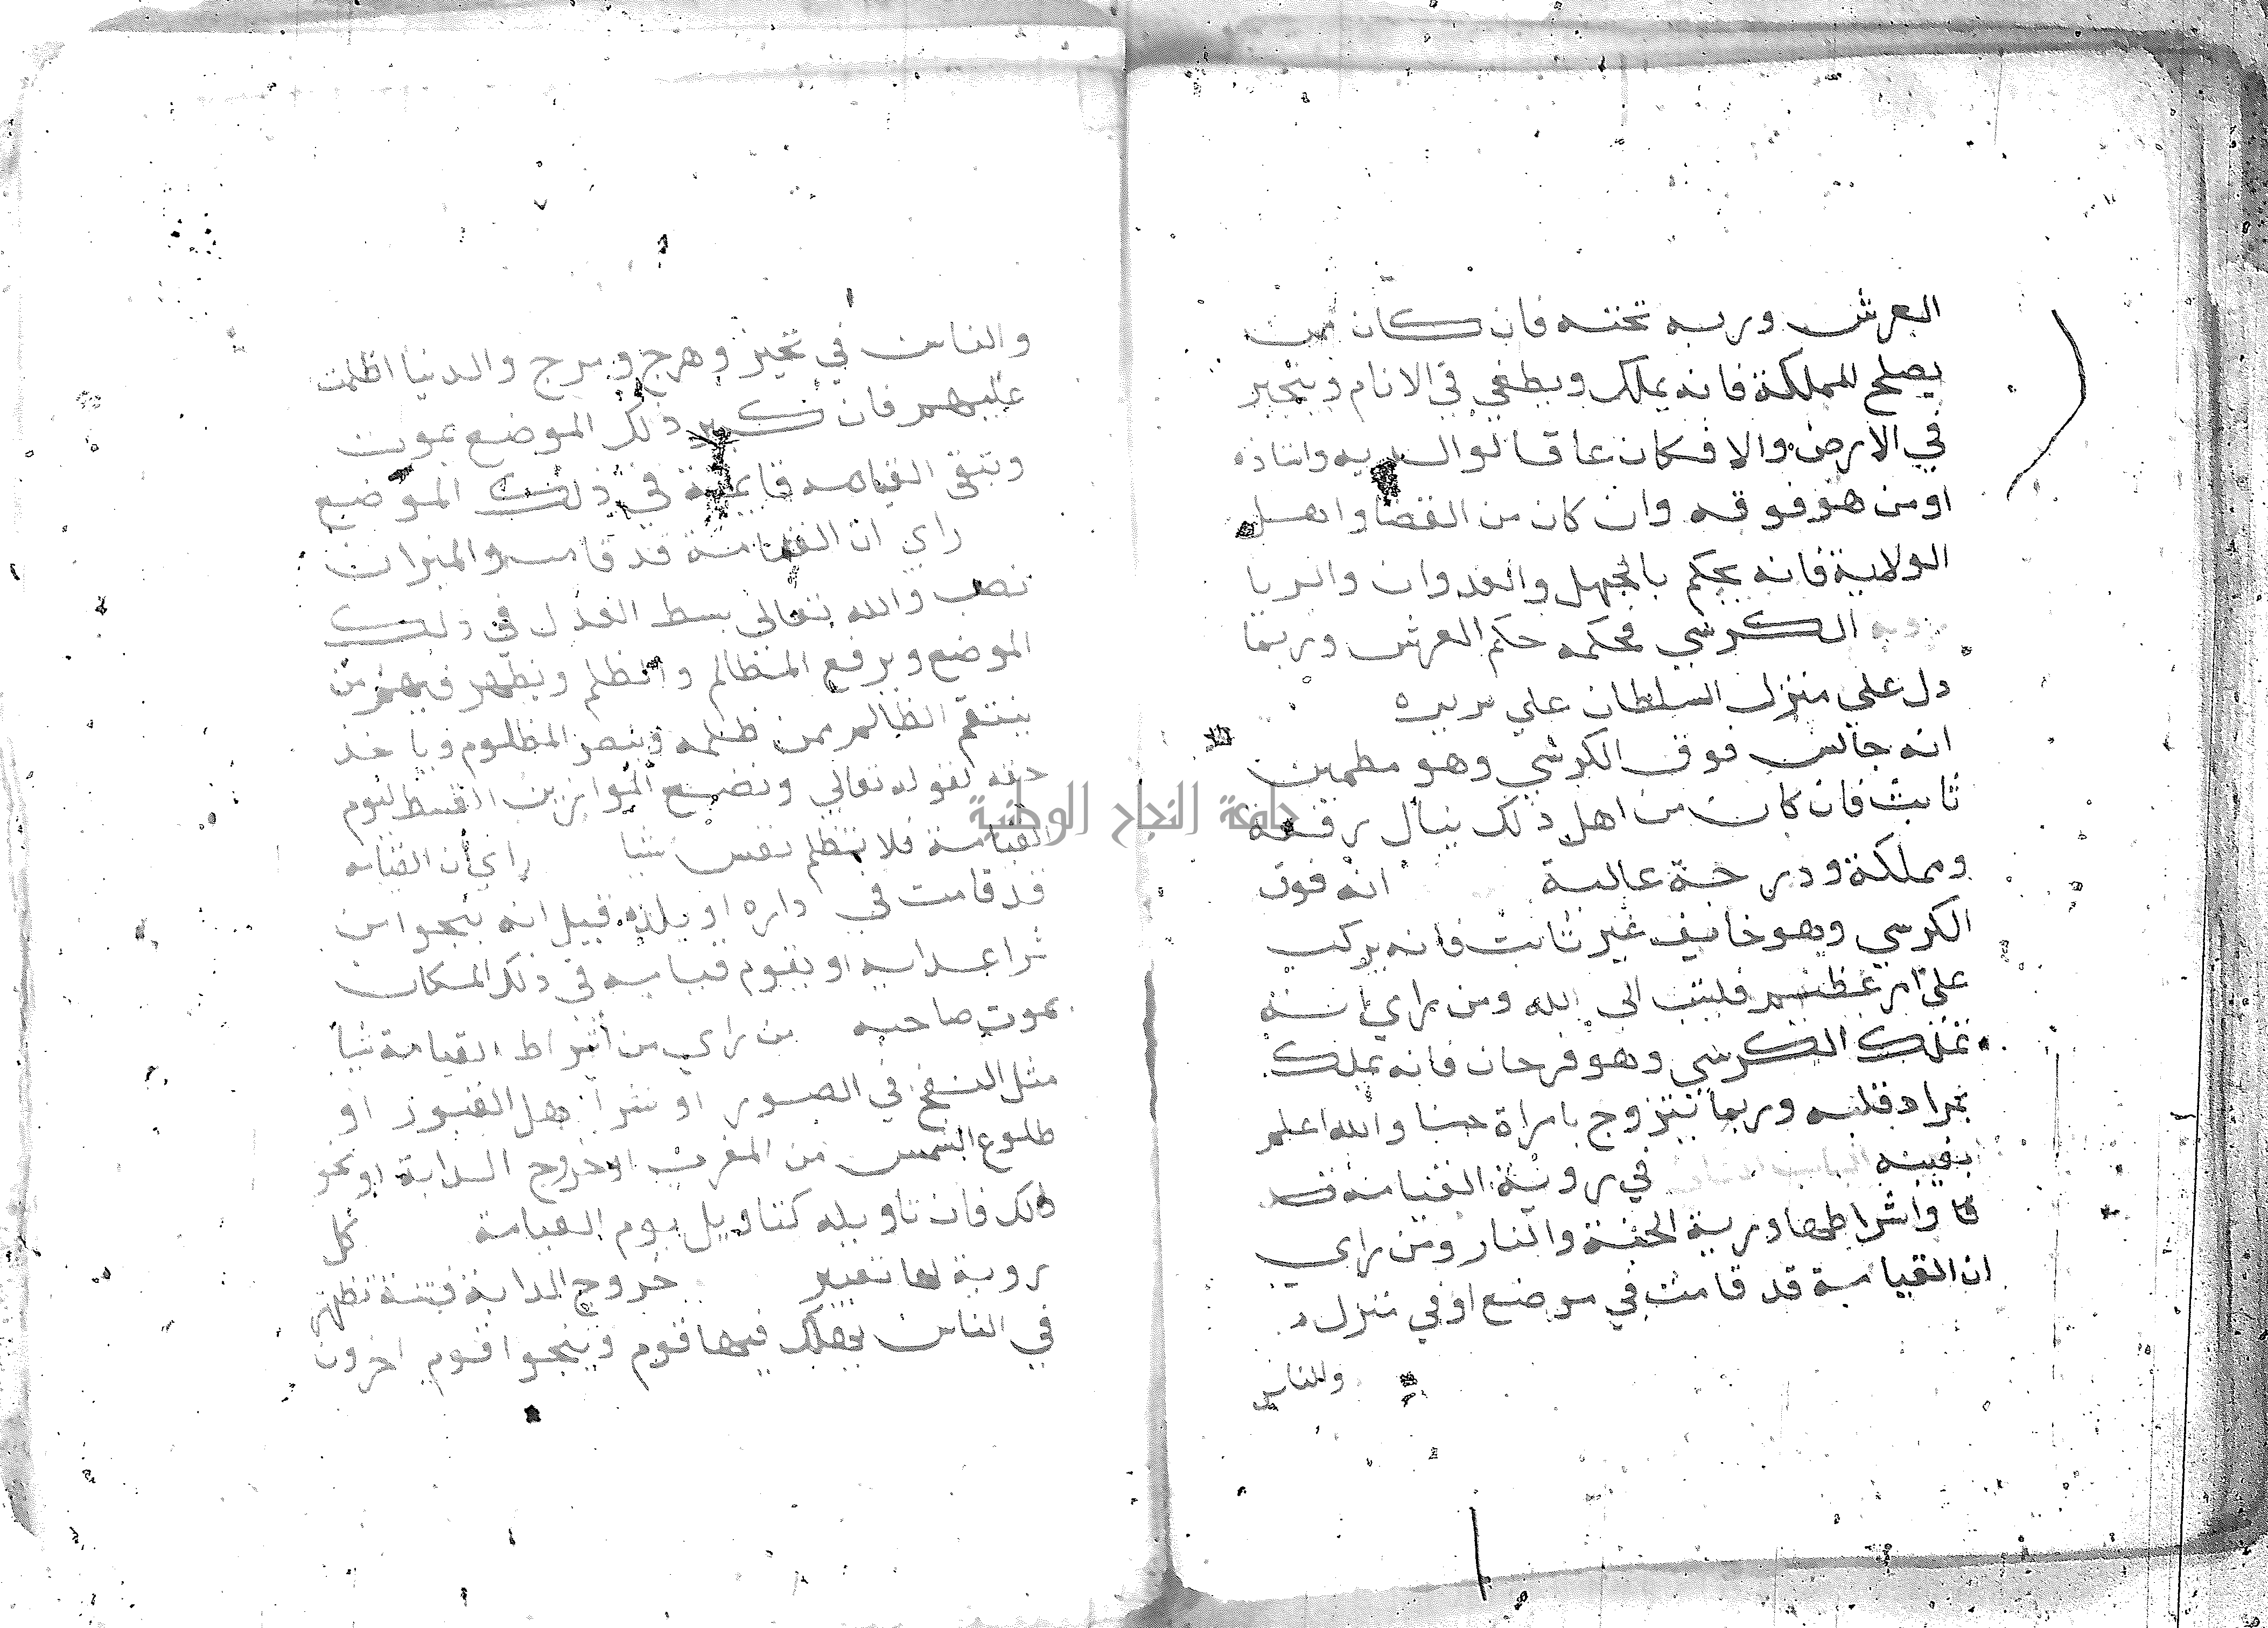 العرش وربه تحته فان كان ممن
يصلح للمملكة فانه يملك ويطغي في الانام ويتجبر
في الارض والا فكان عاقا لوالديه واستاذه
او من هو فوقه وان كان من القضا واهل
الولاية فانه يحكم بالجهل والعدوان والريا
الكرسي فحكمه حكم العرش وربما
دل علي منزل السلطان علي سريره
انه جالس فوق الكرسي وهو مطمين
ثابت فان كان من اهل ذلك ينال رفعة
ومملكة ودرجة عالية انه فوق
الكرسي وهو خايف غير ثابت فانه يركب
علي امر عظيم فليتب الى الله ومن راي انه
تملك الكرسي وهو فرحان فانه يملك
بمراد قلبه وربما تتزوج بامراة حسنا والله اعلم
بغيبه في روية القيامة
واشراطها ورية الجنة والنار ومن راي
ان القيامة قد قامت في موضع او في منزل
وللناس
والناس في تحيز وهرج ومرج والدنيا اظلمت
عليهم فان كبير ذلك الموضع يموت
وتبقي القيامه قايمة في ذلك الموضع
راي ان القيامة قد قامت والميزان
نصب والله تعالي بسط العدل في ذلك
الموضع ويرفع المظالم والظلم ويظهر فيهم من
ينتقم الظالم ممن ظلمه وينصر المظلوم وياخذ
حقه لقوله تعالي ونضع الموازين القسط ليوم
القيامة فلا تظلم نفس شيا راي ان القيامه
قد قامت في داره او بلده قيل انه ينجو من
شر اعدايه او يقوم قيامه في ذلك المكان
بموت صاحبه من راي من أشراط القيامة شيأ
مثل النفخ في الصور او نشر اهل القبور او
طلوع الشمس من المغرب او خروج الدابة او نحو
ذلك فان تاويله كتاويل يوم القيامة كل
روية لها تعبير خروج الدابة فتنة تظهر
في الناس يهلك فيها قوم وينجوا قوم اخرون
جامعة النجاح الوطنية